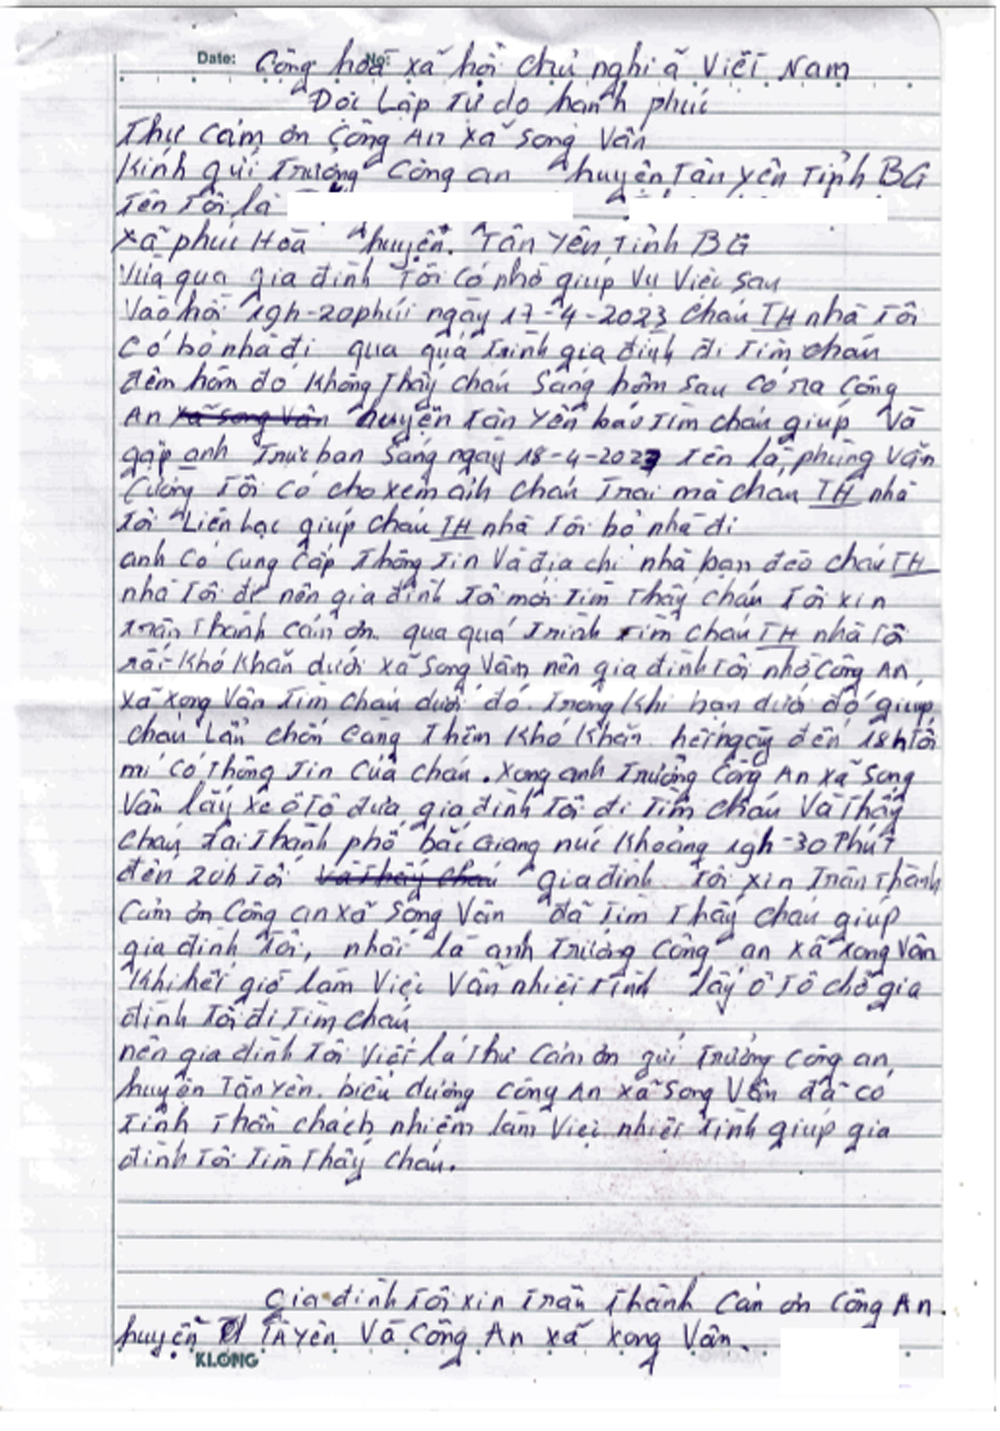 Date: No:
Cộng hoà xã hội chủ nghĩa Việt Nam
Độc Lập Tự do hạnh phúc
Thư cảm ơn Công An xã Song Vân
Kính gửi Trưởng Công an huyện Tân Yên Tỉnh BG
Tên Tôi là
xã phúc Hoà huyện. Tân Yên Tỉnh BG
Vừa qua gia đình Tôi có nhờ giúp Vụ Việc sau
Vào hồi 19h-20phút ngày 17-4-2023 cháu TH nhà Tôi
có bỏ nhà đi qua quá trình gia đình đi Tìm cháu
đêm hôm đó không Thấy cháu Sáng hôm sau có ra Công
An xã Song Vân huyện Tân Yên báo Tìm cháu giúp Và
gặp anh Trực ban Sáng ngày 18-4-2023 Tên là, phùng Văn
Cường Tôi có cho xem ảnh cháu Trai mà cháu TH nhà
Tôi Liên hạc giúp cháu TH nhà Tôi bỏ nhà đi
anh có Cung Cấp Thông Tin Và địa chỉ nhà bạn đèo cháu TH
nhà Tôi đi nên gia đình Tôi mới Tìm Thấy cháu Tôi xin
trân Thành cảm ơn. qua quá Trình Tìm cháu TH nhà Tôi
rất khó khăn dưới xã Song Vân nên gia đình Tôi nhờ Công An,
xã xong Vân Tìm cháu dưới đó. Trong khi bạn dưới đó giúp
cháu Lẩn chốn Càng Thêm khó khăn. hết ngày đến 18h Tôi
mí có Thông Tin Của cháu. xong anh Trưởng Công An xã Song
Vân lấy xe ô Tô đưa gia đình Tôi đi Tìm cháu Và Thấy
cháu Tại Thành phố bắc Giang núc khoảng 19h-30 Phút
đến 20h Tối Và Thấy cháu gia đình Tôi xin Trân Thành
Cảm ơn Công an xã Song Vân đã Tìm Thấy cháu giúp
gia đình Tôi, nhất là anh Trưởng Công an xã xong Vân
khi hết giờ làm Việc Vẫn nhiệt Tình lấy ô Tô chở gia
đình Tôi đi Tìm cháu
nên gia đình Tôi Viết lá Thư Cảm ơn gửi Trưởng Công an,
huyện Tân Yên. biểu dương Công An xã Song Vân đã có
Tinh Thần chách nhiệm làm Việc nhiệt Tình giúp gia
đình Tôi Tìm Thấy cháu.
Gia đình Tôi xin Trân Thành Cản ơn Công An.
huyện TÂYên Và Công An xã xong Vân
KLONG